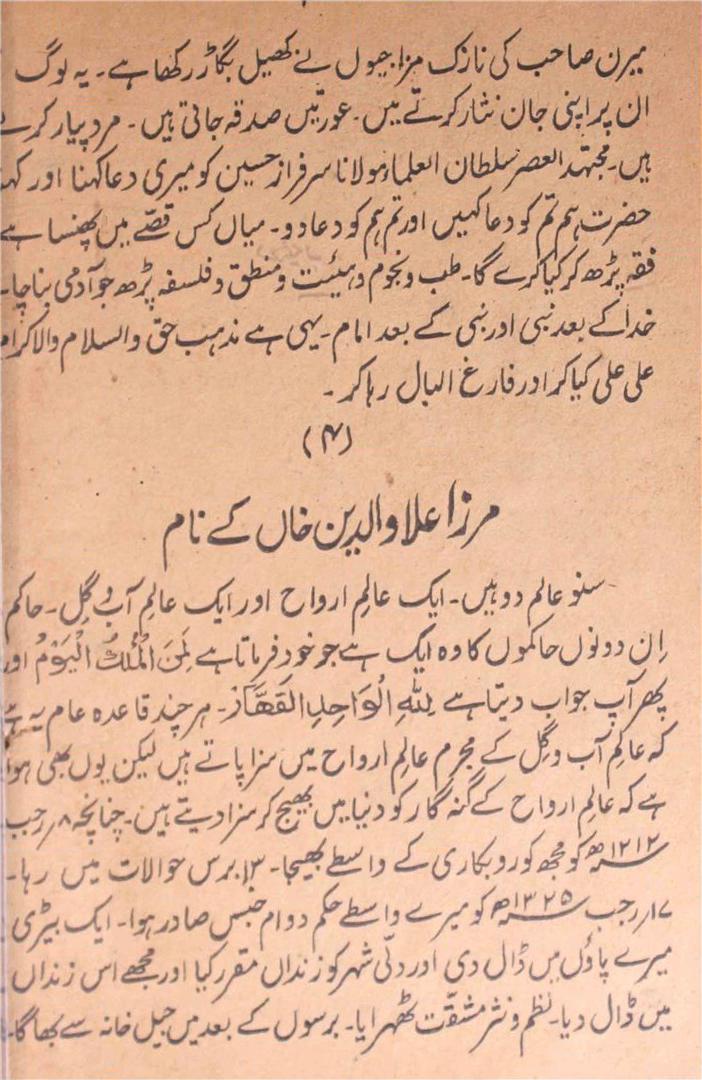 میرن صاحب کی نازک مزاجیوں نے کھیل بگاڑ رکھا ہے۔ یہ لوگ
ان پر اپنی جان نثار کرتے ہیں۔ عورتیں صدقہ جاتی ہیں۔ مرد پیار کرتے
ہیں۔ مجتہد العصر سلطان العلماء مولانا سرفراز حسین کو میری دعا کہنا اور کہنا
حضرت ہم تم کو دعا کہیں اور تم ہم کو دعا دو۔ میاں کس قصّے میں پھنسا ہے
فقہ پڑھ کر کیا کرے گا۔ طب و نجوم و ہیئت و منطق و فلسفہ پڑھ جو آدمی بنا چاہے۔
خدا کے بعد نبی اور نبی کے بعد امام۔ یہی ہے مذہب حق والسلام والاکرام
علی علی کیا کر اور فارغ البال رہا کر۔
(۴)
مرزا علاوالدین خاں کے نام
سنو عالم دو ہیں۔ ایک عالمِ ارواح اور ایک عالمِ آب و گِل۔ حاکم
اِن دونوں حاکموں کا وہ ایک ہے جو خود فرماتا ہے لِمَنِ الْمُلْكُ الْيَوْمُ اور
پھر آپ جواب دیتا ہے لِلّٰهِ الْوَاحِدِ الْقَهَّارْ۔ ہر چند قاعدہ عام یہ ہے
کہ عالمِ آب و گِل کے مجرم عالمِ ارواح میں سزا پاتے ہیں لیکن یوں بھی ہوا
ہے کہ عالمِ ارواح کے گنہ گار کو دنیا میں بھیج کر سزا دیتے ہیں۔ چنانچہ ۸؍ رجب
۱۲۱۲ھ کو مجھ کو روبکاری کے واسطے بھیجا۔ ۱۳ برس حوالات میں رہا۔
۱۷؍ رجب ۱۳۲۵ھ کو میرے واسطے حکم دوام حبس صادر ہوا۔ ایک بیڑی
میرے پاؤں میں ڈال دی اور دلّی شہر کو زنداں مقرر کیا اور مجھے اس زنداں
میں ڈال دیا۔ نظم و نثر مشقّت ٹھہرایا۔ برسوں کے بعد میں جیل خانہ سے بھاگا۔